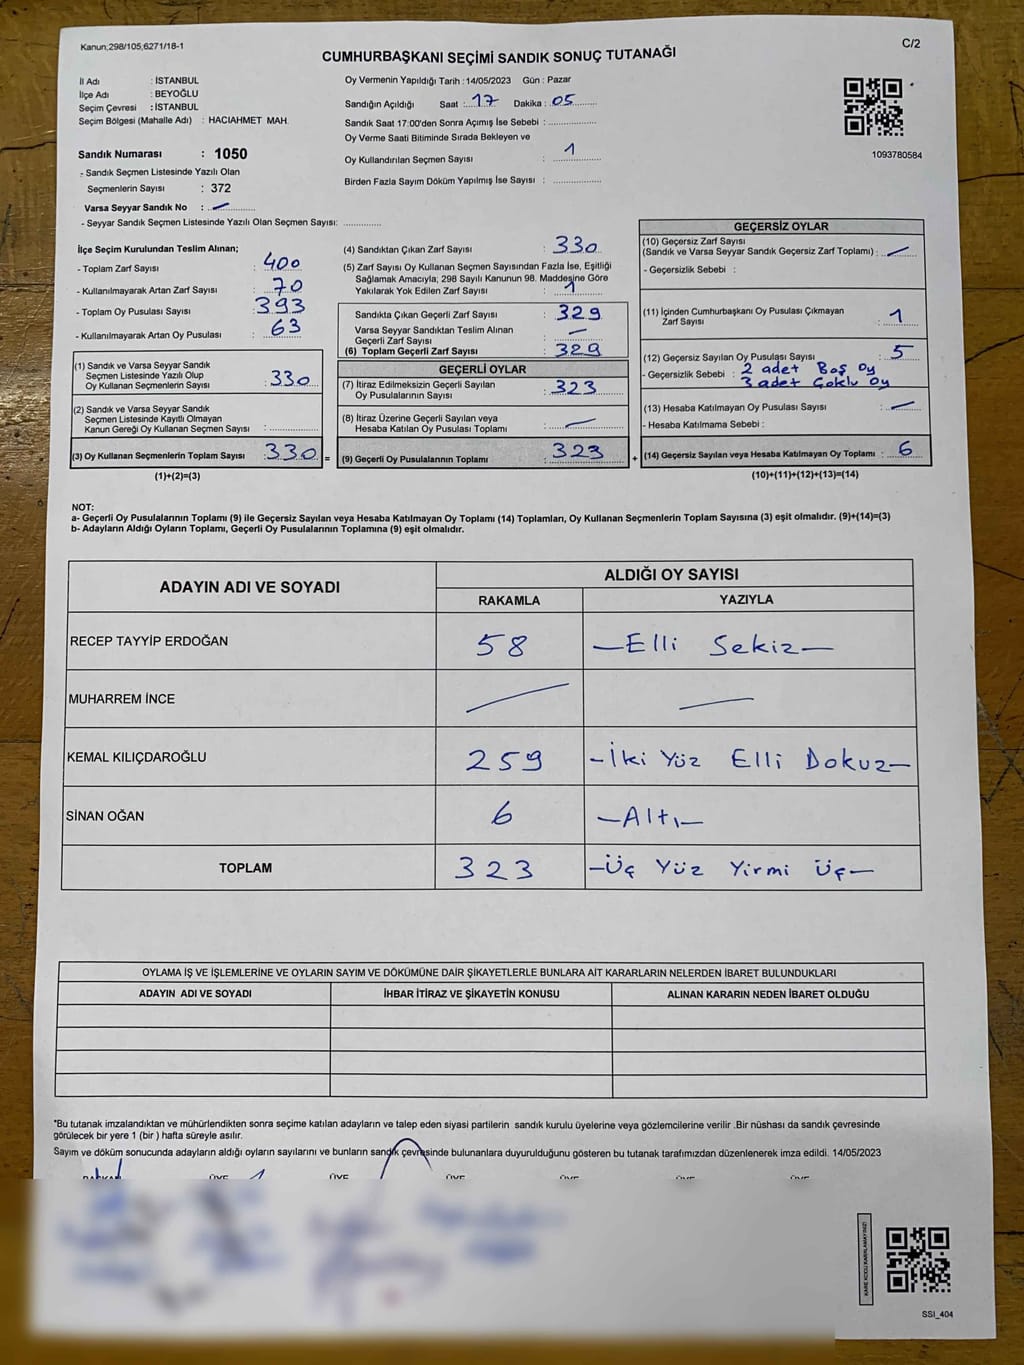 Kanun;298/105,6271/18-1
C/2
CUMHURBAŞKANI SEÇİMİ SANDIK SONUÇ TUTANAĞI
İl Adı : İSTANBUL
İlçe Adı : BEYOĞLU
Seçim Çevresi : İSTANBUL
Seçim Bölgesi (Mahalle Adı) : HACIAHMET MAH.
Sandık Numarası : 1050
- Sandık Seçmen Listesinde Yazılı Olan
Seçmenlerin Sayısı : 372
Varsa Seyyar Sandık No : —
- Seyyar Sandık Seçmen Listesinde Yazılı Olan Seçmen Sayısı: ............
Oy Vermenin Yapıldığı Tarih : 14/05/2023 Gün : Pazar
Sandığın Açıldığı Saat : 17 Dakika : 05
Sandık Saat 17:00'den Sonra Açımış İse Sebebi : ............
Oy Verme Saati Bitiminde Sırada Bekleyen ve
Oy Kullandırılan Seçmen Sayısı : 1
Birden Fazla Sayım Döküm Yapılmış İse Sayısı : ............
1093780584
İlçe Seçim Kurulundan Teslim Alınan;
- Toplam Zarf Sayısı : 400
- Kullanılmayarak Artan Zarf Sayısı : 70
- Toplam Oy Pusulası Sayısı : 393
- Kullanılmayarak Artan Oy Pusulası : 63
(1) Sandık ve Varsa Seyyar Sandık
Seçmen Listesinde Yazılı Olup
Oy Kullanan Seçmenlerin Sayısı : 330
(2) Sandık ve Varsa Seyyar Sandık
Seçmen Listesinde Kayıtlı Olmayan
Kanun Gereği Oy Kullanan Seçmen Sayısı : ............
(3) Oy Kullanan Seçmenlerin Toplam Sayısı : 330 =
(1)+(2)=(3)
(4) Sandıktan Çıkan Zarf Sayısı : 330
(5) Zarf Sayısı Oy Kullanan Seçmen Sayısından Fazla İse, Eşitliği
Sağlamak Amacıyla; 298 Sayılı Kanunun 98. Maddesine Göre
Yakılarak Yok Edilen Zarf Sayısı : 1
Sandıkta Çıkan Geçerli Zarf Sayısı : 329
Varsa Seyyar Sandıktan Teslim Alınan
Geçerli Zarf Sayısı : —
(6) Toplam Geçerli Zarf Sayısı : 329
GEÇERLİ OYLAR
(7) İtiraz Edilmeksizin Geçerli Sayılan
Oy Pusulalarının Sayısı : 323
(8) İtiraz Üzerine Geçerli Sayılan veya
Hesaba Katılan Oy Pusulası Toplamı : —
(9) Geçerli Oy Pusulalarının Toplamı : 323 +
GEÇERSİZ OYLAR
(10) Geçersiz Zarf Sayısı
(Sandık ve Varsa Seyyar Sandık Geçersiz Zarf Toplamı) : —
- Geçersizlik Sebebi :
(11) İçinden Cumhurbaşkanı Oy Pusulası Çıkmayan
Zarf Sayısı : 1
(12) Geçersiz Sayılan Oy Pusulası Sayısı : 5
- Geçersizlik Sebebi : 2 adet Boş Oy
3 adet Çoklu Oy
(13) Hesaba Katılmayan Oy Pusulası Sayısı : —
- Hesaba Katılmama Sebebi :
(14) Geçersiz Sayılan veya Hesaba Katılmayan Oy Toplamı : 6
(10)+(11)+(12)+(13)=(14)
NOT:
a- Geçerli Oy Pusulalarının Toplamı (9) ile Geçersiz Sayılan veya Hesaba Katılmayan Oy Toplamı (14) Toplamları, Oy Kullanan Seçmenlerin Toplam Sayısına (3) eşit olmalıdır. (9)+(14)=(3)
b- Adayların Aldığı Oyların Toplamı, Geçerli Oy Pusulalarının Toplamına (9) eşit olmalıdır.
ADAYIN ADI VE SOYADI
ALDIĞI OY SAYISI
RAKAMLA YAZIYLA
RECEP TAYYİP ERDOĞAN 58 —Elli Sekiz—
MUHARREM İNCE — —
KEMAL KILIÇDAROĞLU 259 -İki Yüz Elli Dokuz—
SİNAN OĞAN 6 —Altı—
TOPLAM 323 —Üç Yüz Yirmi Üç—
OYLAMA İŞ VE İŞLEMLERİNE VE OYLARIN SAYIM VE DÖKÜMÜNE DAİR ŞİKAYETLERLE BUNLARA AİT KARARLARIN NELERDEN İBARET BULUNDUKLARI
ADAYIN ADI VE SOYADI İHBAR İTİRAZ VE ŞİKAYETİN KONUSU ALINAN KARARIN NEDEN İBARET OLDUĞU
*Bu tutanak imzalandıktan ve mühürlendikten sonra seçime katılan adayların ve talep eden siyasi partilerin sandık kurulu üyelerine veya gözlemcilerine verilir .Bir nüshası da sandık çevresinde
görülecek bir yere 1 (bir ) hafta süreyle asılır.
Sayım ve döküm sonucunda adayların aldığı oyların sayılarını ve bunların sandık çevresinde bulunanlara duyurulduğunu gösteren bu tutanak tarafımızdan düzenlenerek imza edildi. 14/05/2023
BAŞKAN ÜYE ÜYE ÜYE ÜYE ÜYE ÜYE
KARE KODU KARALAMAYINIZ!
SSI_404